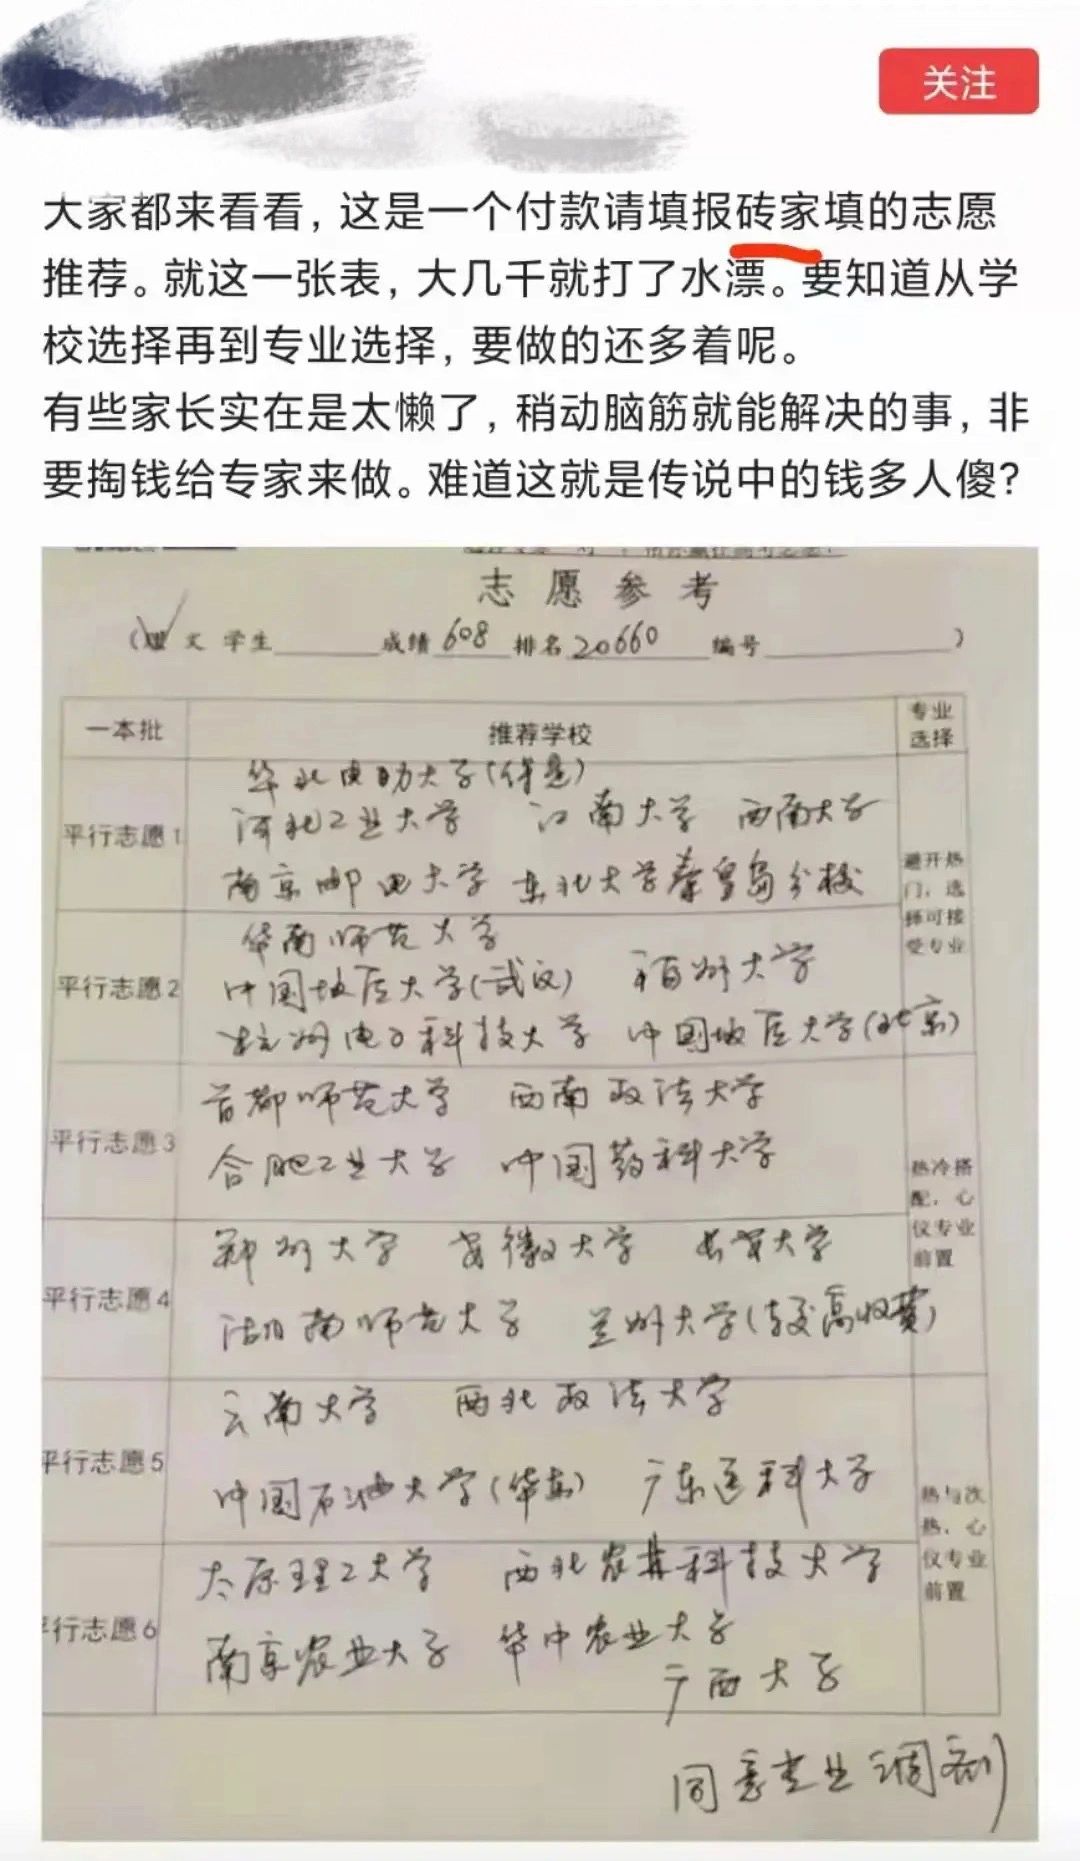 关注
大家都来看看，这是一个付款请填报砖家填的志愿
推荐。就这一张表，大几千就打了水漂。要知道从学
校选择再到专业选择，要做的还多着呢。
有些家长实在是太懒了，稍动脑筋就能解决的事，非
要掏钱给专家来做。难道这就是传说中的钱多人傻？
志愿参考
（理 文 学生 成绩 608 排名 20660 编号 ）
一本批 推荐学校 专业
选择
华北电力大学(保定)
平行志愿1 河北工业大学 江南大学 西南大学
南京邮电大学 东北大学秦皇岛分校
避开热
门，选
择可接
受专业
华南师范大学
平行志愿2 中国地质大学(武汉) 福州大学
杭州电子科技大学 中国地质大学(北京)
首都师范大学 西南政法大学
平行志愿3 合肥工业大学 中国药科大学
热冷搭
配，心
仪专业
前置
郑州大学 安徽大学 长安大学
平行志愿4 湖南师范大学 兰州大学(较高收费)
云南大学 西北政法大学
平行志愿5 中国石油大学(华东) 广东医科大学
热与次
热，心
仪专业
前置
太原理工大学 西北农林科技大学
平行志愿6 南京农业大学 华中农业大学
广西大学
同意专业调剂